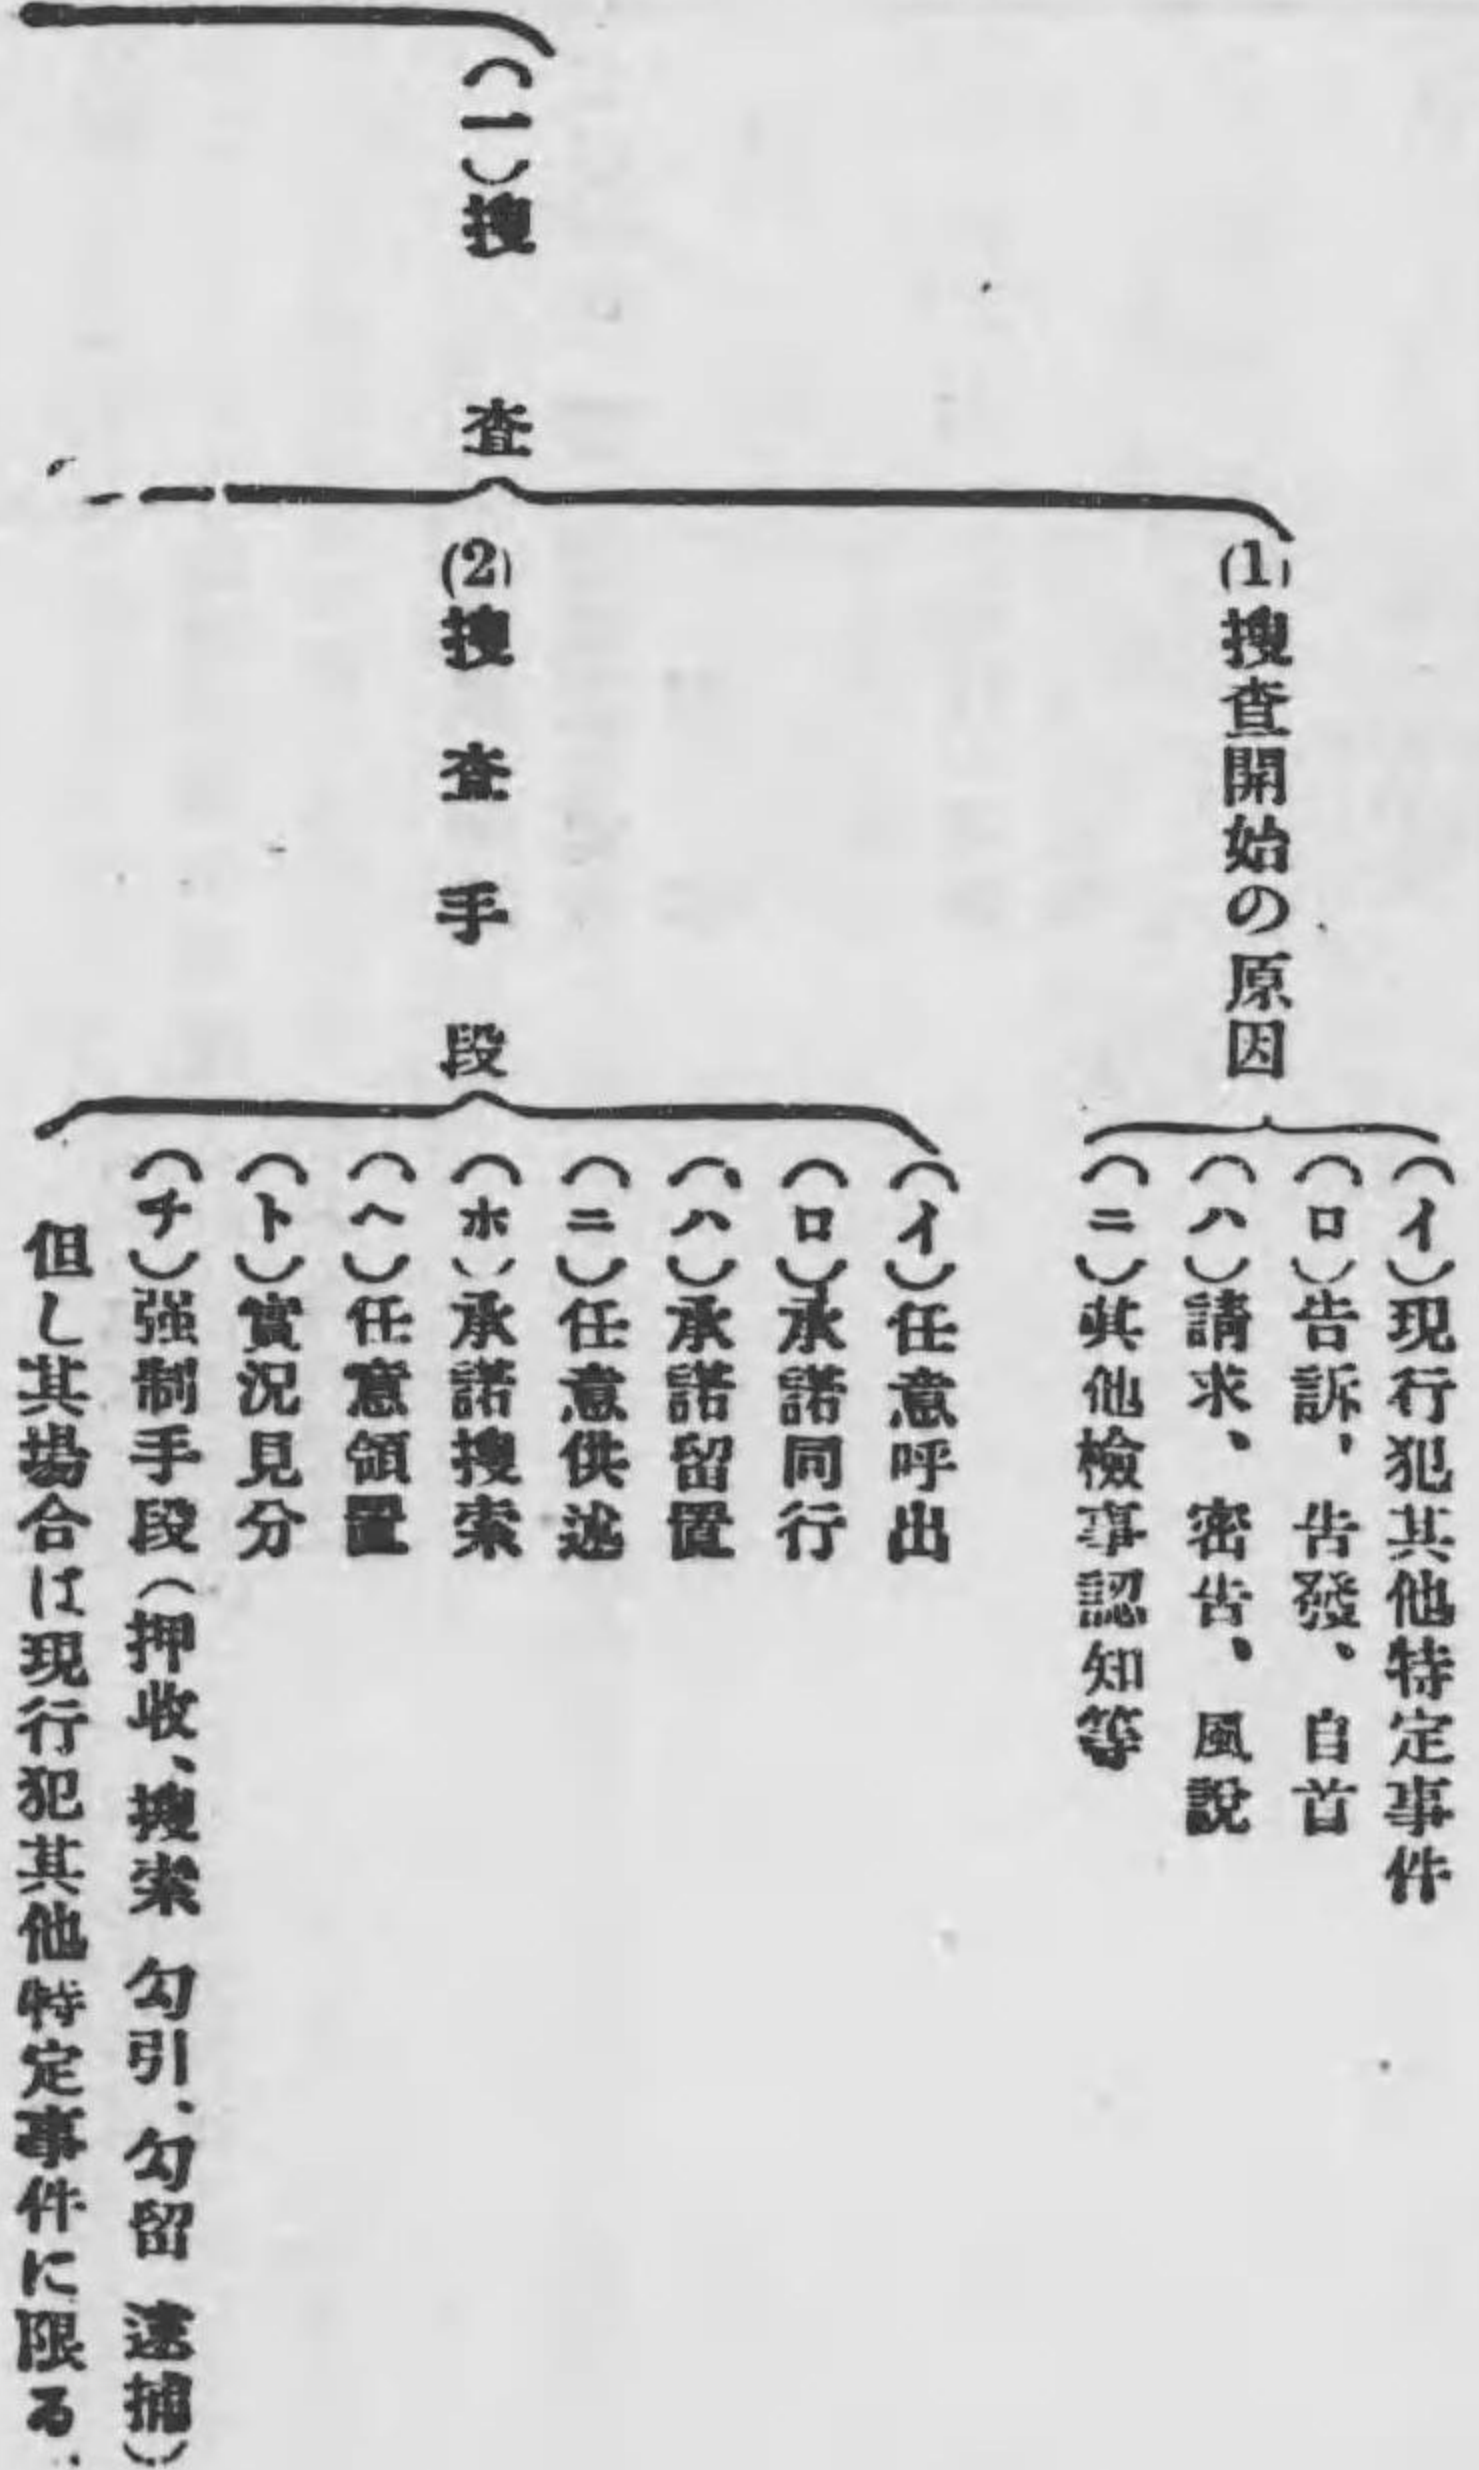 (一)搜查
(1)搜查開始の原因
(イ)現行犯其他特定事件
(ロ)告訴，告發、自首
(ハ)請求、密告、風說
(ニ)其他檢事認知等
(2)搜查手段
(イ)任意呼出
(ロ)承諾同行
(ハ)承諾留置
(ニ)任意供述
(ホ)承諾搜索
(ヘ)任意領置
(ト)實況見分
(チ)强制手段(押收、搜索 勾引、勾留 逮捕)
但し其場合は現行犯其他特定事件に限る、